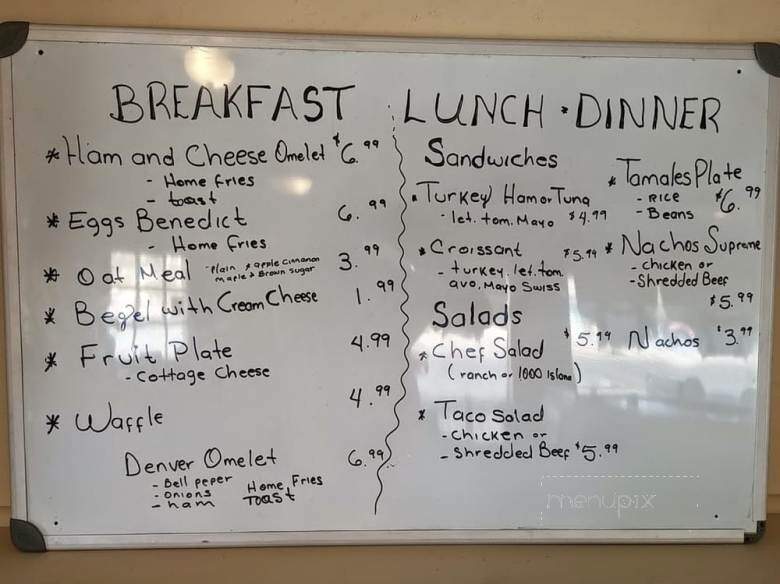 BREAKFAST
* Ham and Cheese Omelet $6.99
- Home fries
- toast
* Eggs Benedict 6.99
- Home fries
* Oat Meal - Plain * apple cinnamon 3.99
maple & Brown sugar
* Begel with Cream Cheese 1.99
* Fruit Plate 4.99
- Cottage Cheese
* Waffle 4.99
Denver Omelet 6.99
- Bell peper Home Fries
- onions Toast
- ham
LUNCH • DINNER
Sandwiches
* Turkey Ham or Tuna
- let. tom. Mayo $4.99
* Croissant $5.99
- turkey. let. tom
avo. Mayo Swiss
Salads
* Chef Salad $5.99
(ranch or 1000 Island)
* Taco Salad
- chicken or
- shredded Beef $5.99
* Tamales Plate
- RICE $6.99
- Beans
* Nachos Supreme
- chicken or
- Shredded Beef
$5.99
Nachos $3.99
menupix